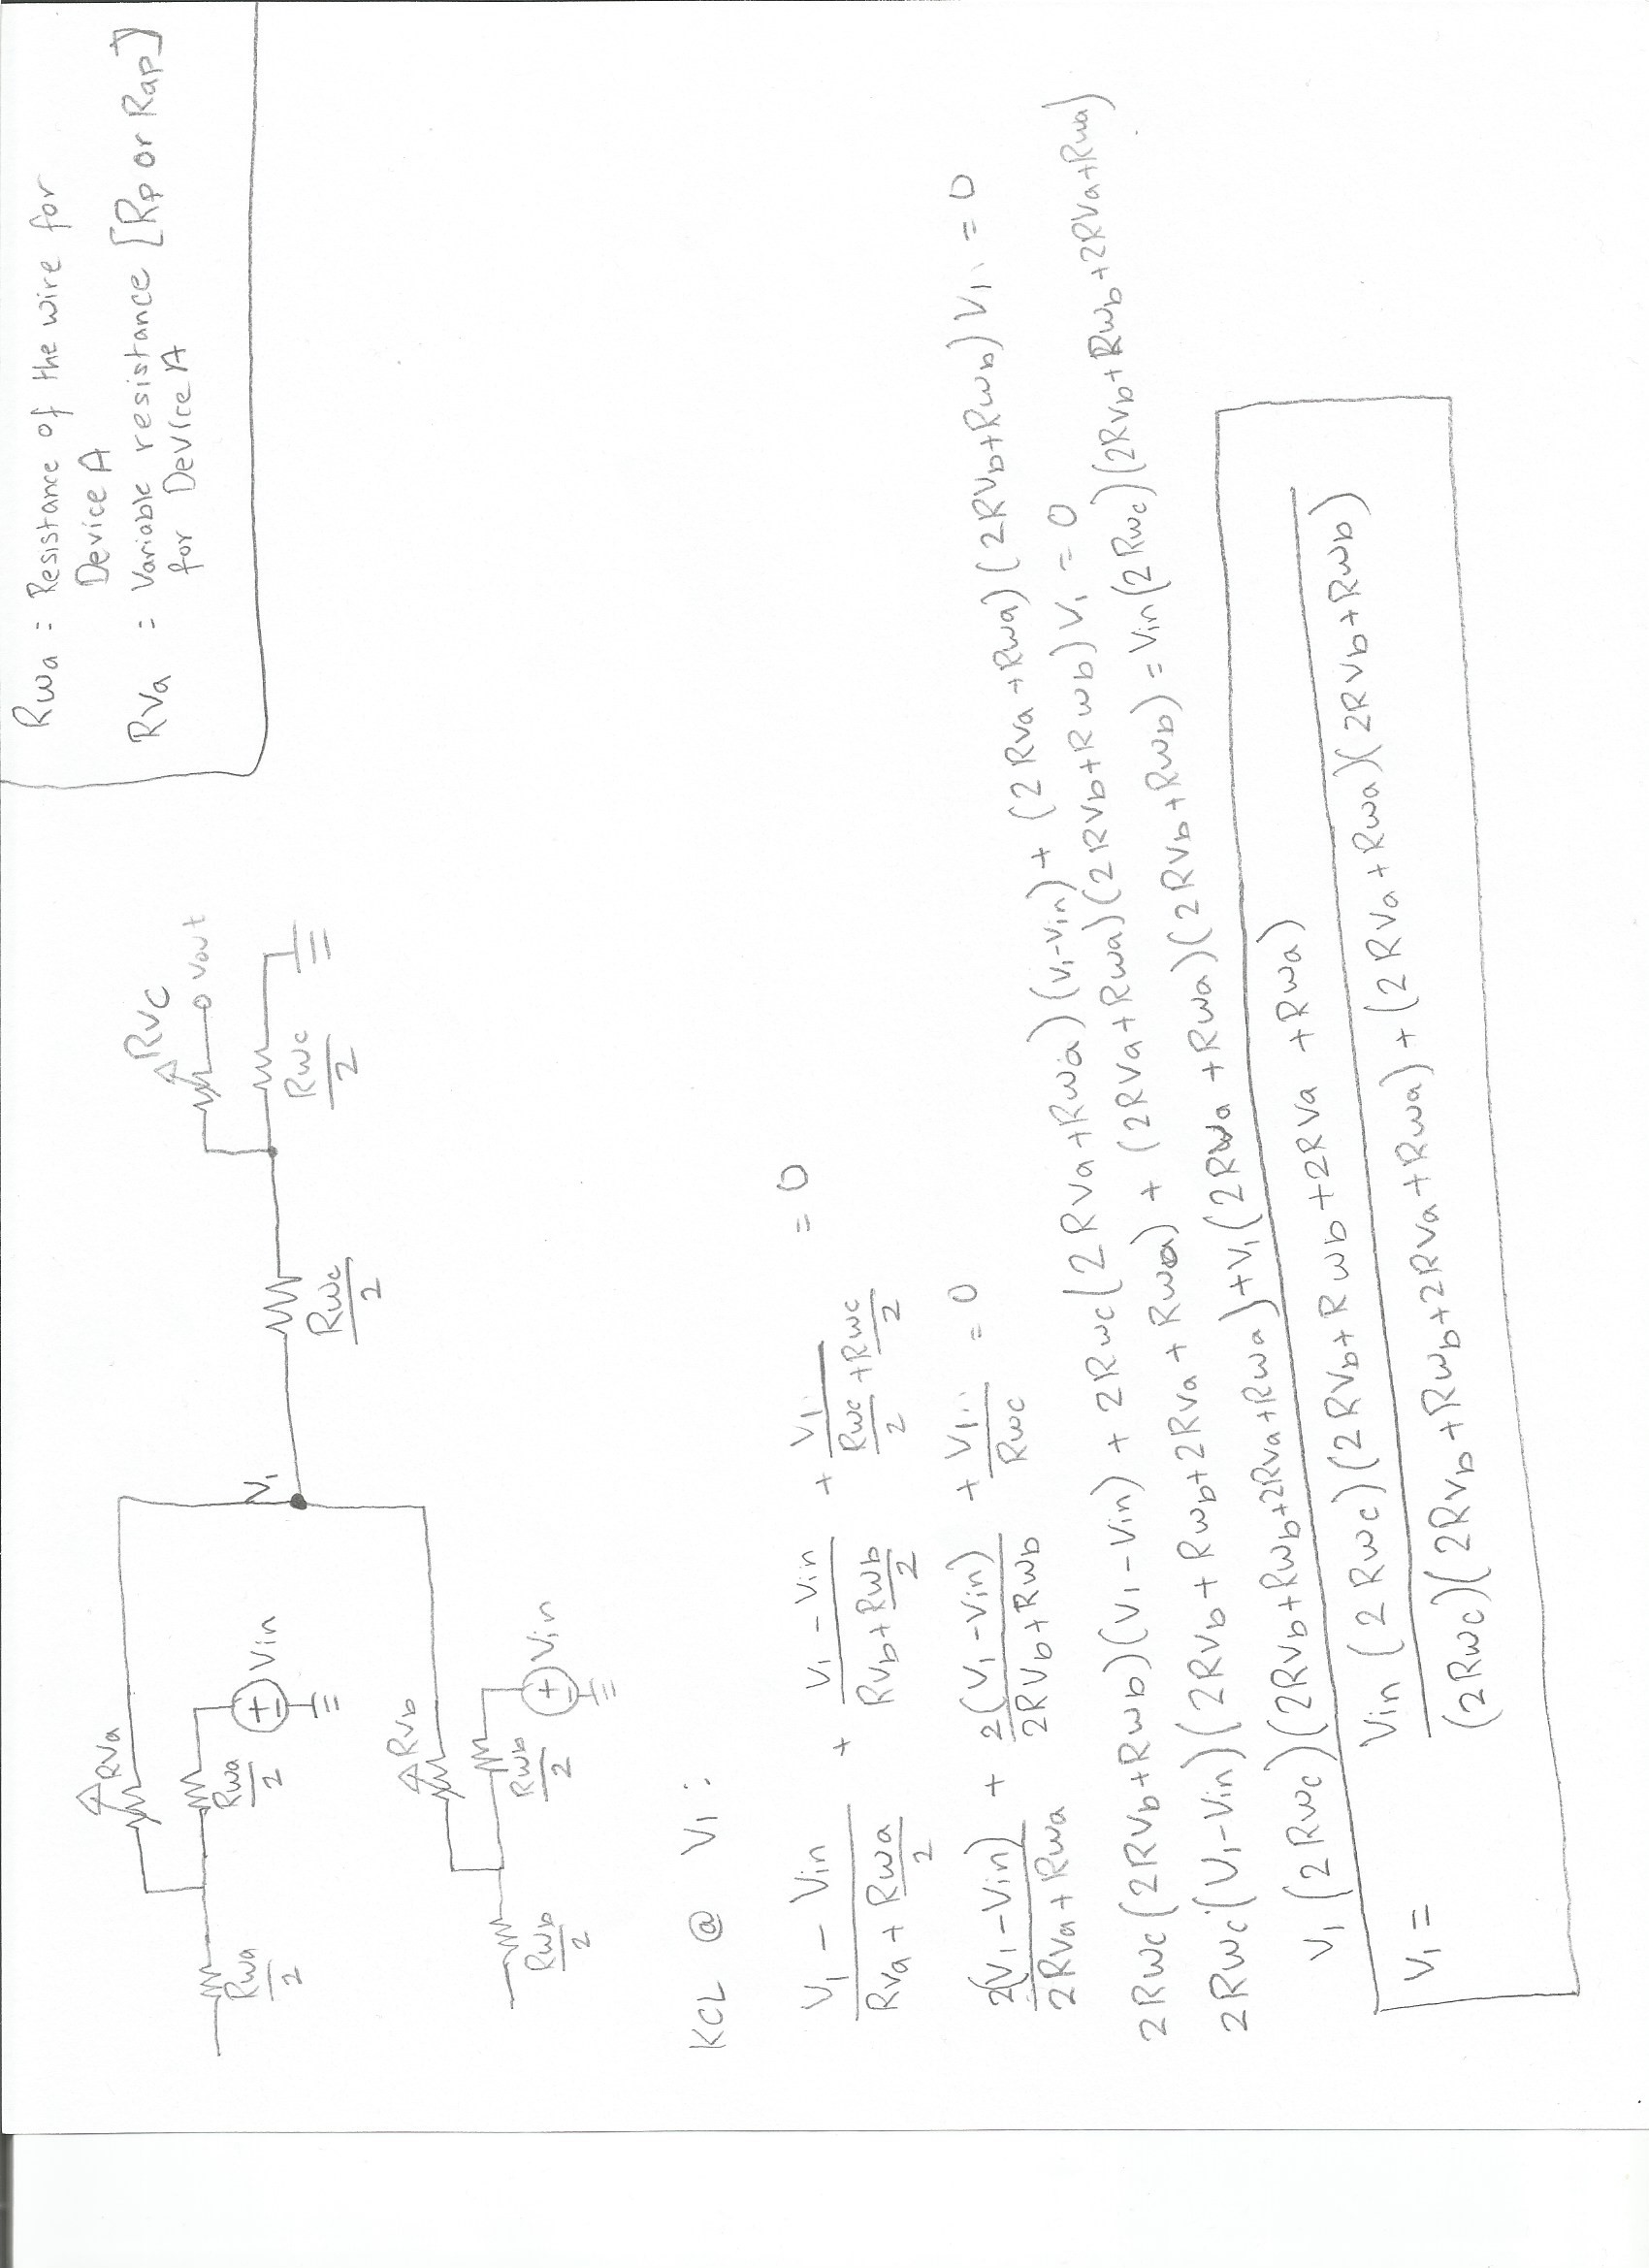 Rwa = Resistance of the wire for
Device A
RVa = Variable resistance [Rp or Rap]
for Device A
RVa
Rwa/2
Rwa/2
Vin
V1
RVc
Vout
Rwc/2
Rwc/2
RVb
Rwb/2
Rwb/2
Vin
KCL @ V1 :
(V1 - Vin)/(Rva + Rwa/2) + (V1 - Vin)/(RVb + Rwb/2) + V1/(Rwc/2 + Rwc/2) = 0
2(V1 - Vin)/(2RVa + Rwa) + 2(V1 - Vin)/(2RVb + Rwb) + V1/Rwc = 0
2Rwc(2RVb+Rwb)(V1-Vin) + 2Rwc(2RVa+Rwa)(V1-Vin) + (2Rva+Rwa)(2RVb+Rwb)V1 = 0
2Rwc(V1-Vin)(2RVb+Rwb+2RVa+Rwa) + (2RVa+Rwa)(2RVb+Rwb)V1 = 0
V1(2Rwc)(2RVb+Rwb+2RVa+Rwa)+V1(2RVa+Rwa)(2RVb+Rwb) = Vin(2Rwc)(2RVb+Rwb+2RVa+Rwa)
V1 = Vin(2Rwc)(2RVb+Rwb+2RVa+Rwa)
(2Rwc)(2RVb+Rwb+2RVa+Rwa)+(2RVa+Rwa)(2RVb+Rwb)